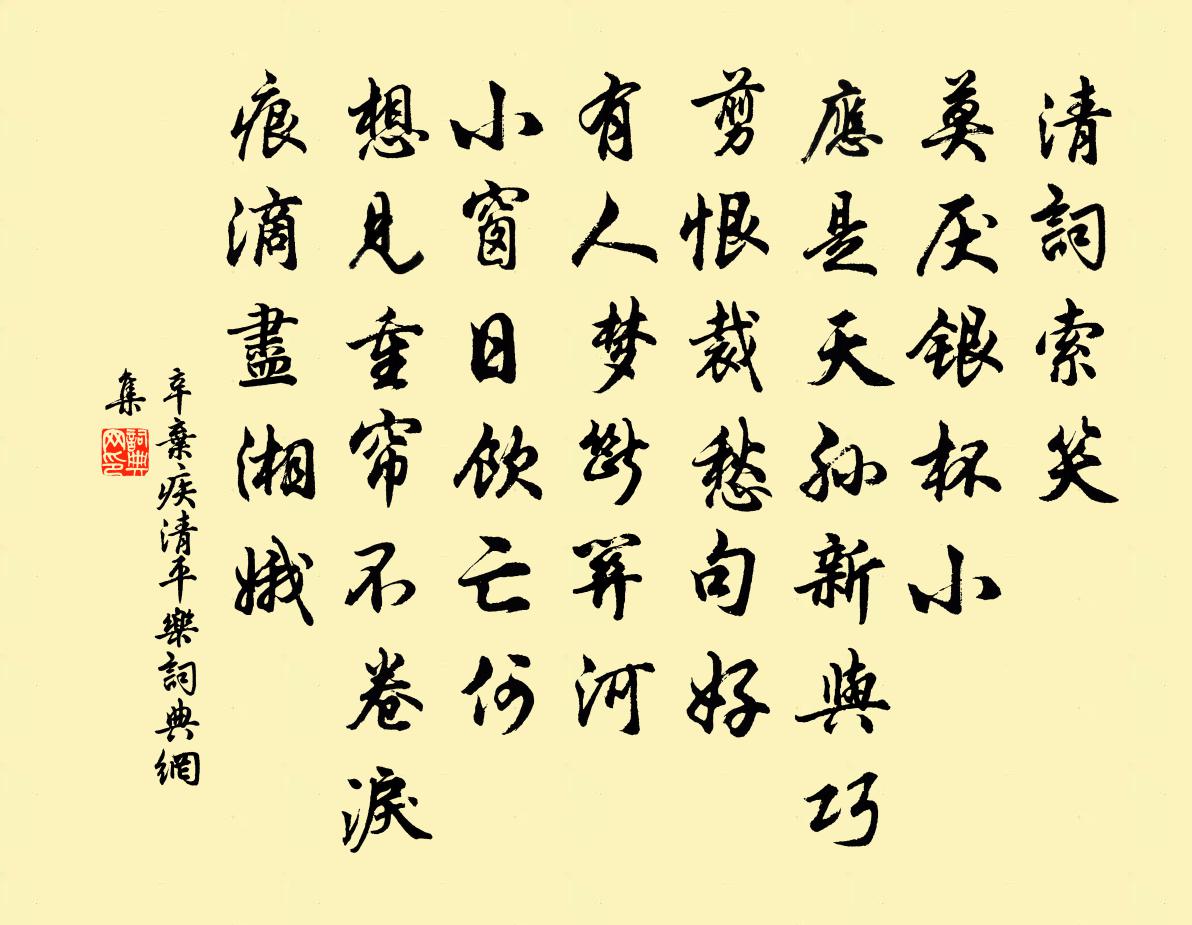 清詞索笑
莫厌銀杯小
應是天孙新與巧
剪恨裁愁句好
有人梦斷關河
小窗日飲亡何
想見重帘不卷淚
痕滴盡湘娥
辛棄疾清平樂詞典網
集
詞典网印